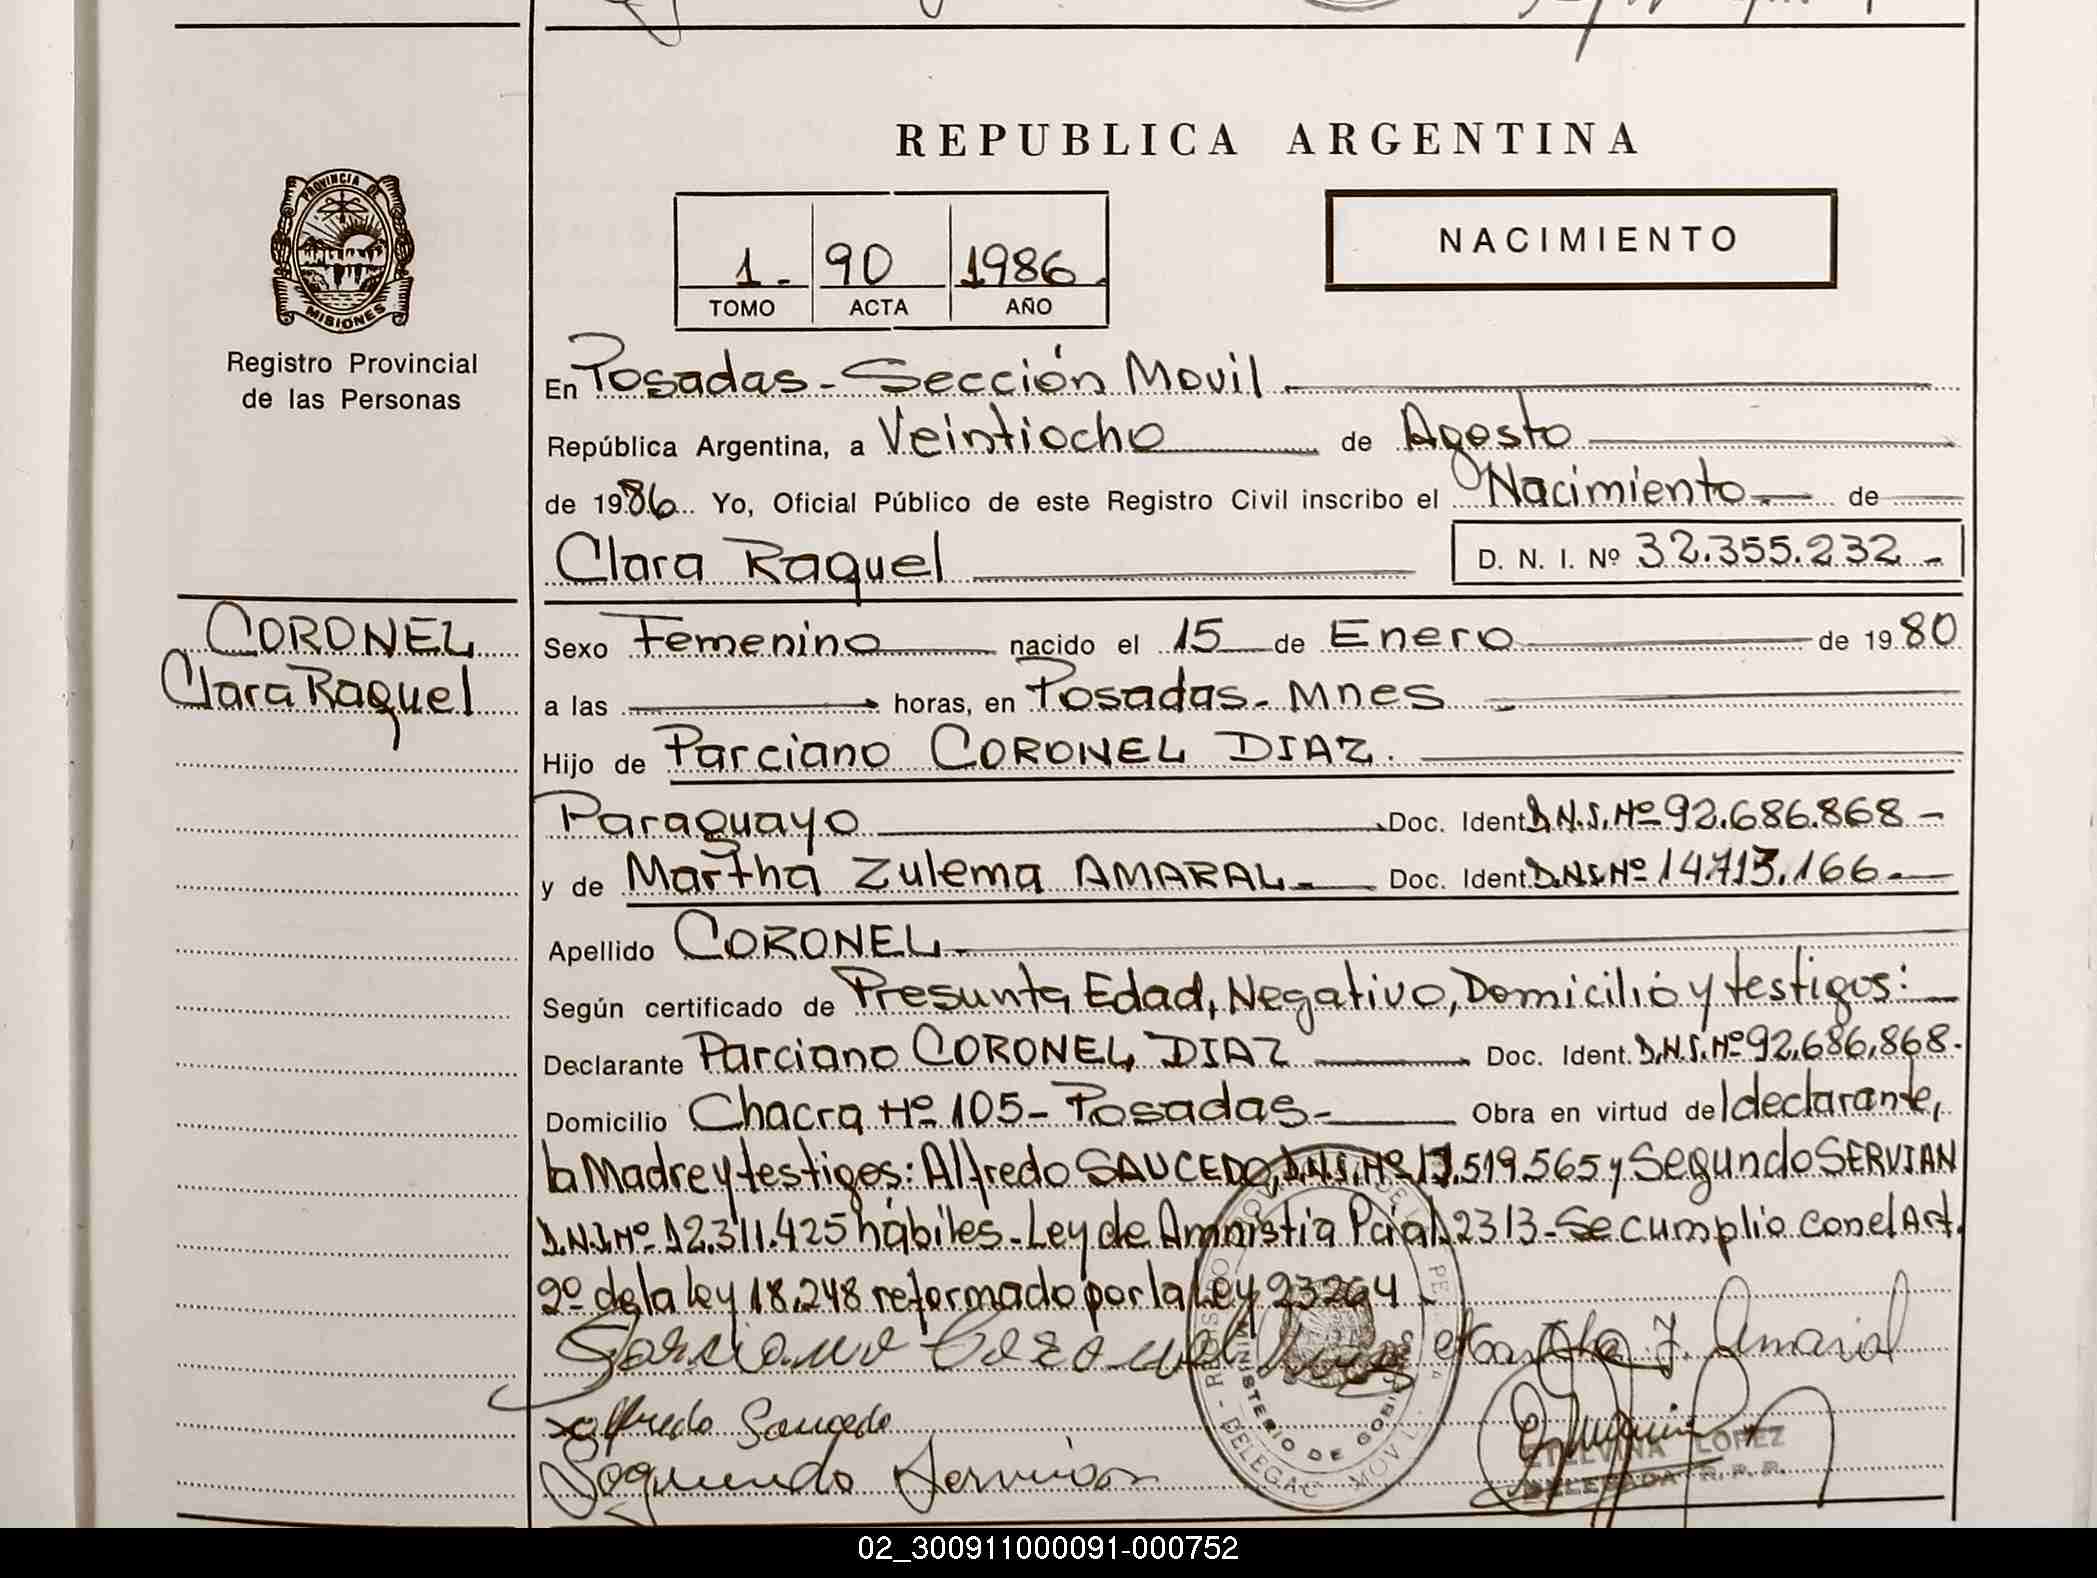 REPUBLICA ARGENTINA
PROVINCIA DE
MISIONES
Registro Provincial
de las Personas
1 - 90 1986.
TOMO ACTA AÑO
NACIMIENTO
En Posadas - Sección Movil
República Argentina, a Veintiocho de Agosto
de 1986 Yo, Oficial Público de este Registro Civil inscribo el Nacimiento de
Clara Raquel D. N. I. Nº 32.355.232 -
CORONEL
Clara Raquel
Sexo Femenino nacido el 15 de Enero de 1980
a las horas, en Posadas - Mnes
Hijo de Parciano CORONEL DIAZ.
Paraguayo Doc. Ident. D.N.I. Nº 92.686.868 -
y de Martha Zulema AMARAL - Doc. Ident. D.N.I. Nº 14.713.166 -
Apellido CORONEL -
Según certificado de Presunta Edad, Negativo, Domicilio y testigos:
Declarante Parciano CORONEL DIAZ Doc. Ident. D.N.I. Nº 92.686.868.
Domicilio Chacra Nº 105 - Posadas - Obra en virtud del declarante,
la Madre y testigos: Alfredo SAUCEDO, D.N.I. Nº .519.565 y Segundo SERVIAN
D.N.I. Nº 12.311.425 hábiles - Ley de Amnistia Pcial 2313 - Se cumplio con el Art.
2º de la ley 18.248 reformado por la Ley 23264 -
Parciano Coronel Martha Z. Amaral
Alfredo Saucedo
Segundo Servian
MINISTERIO DE GOBI
DELEGAC MOVIL
ETELVINA LOPEZ
DELEGADA R. P. P.
02_300911000091-000752